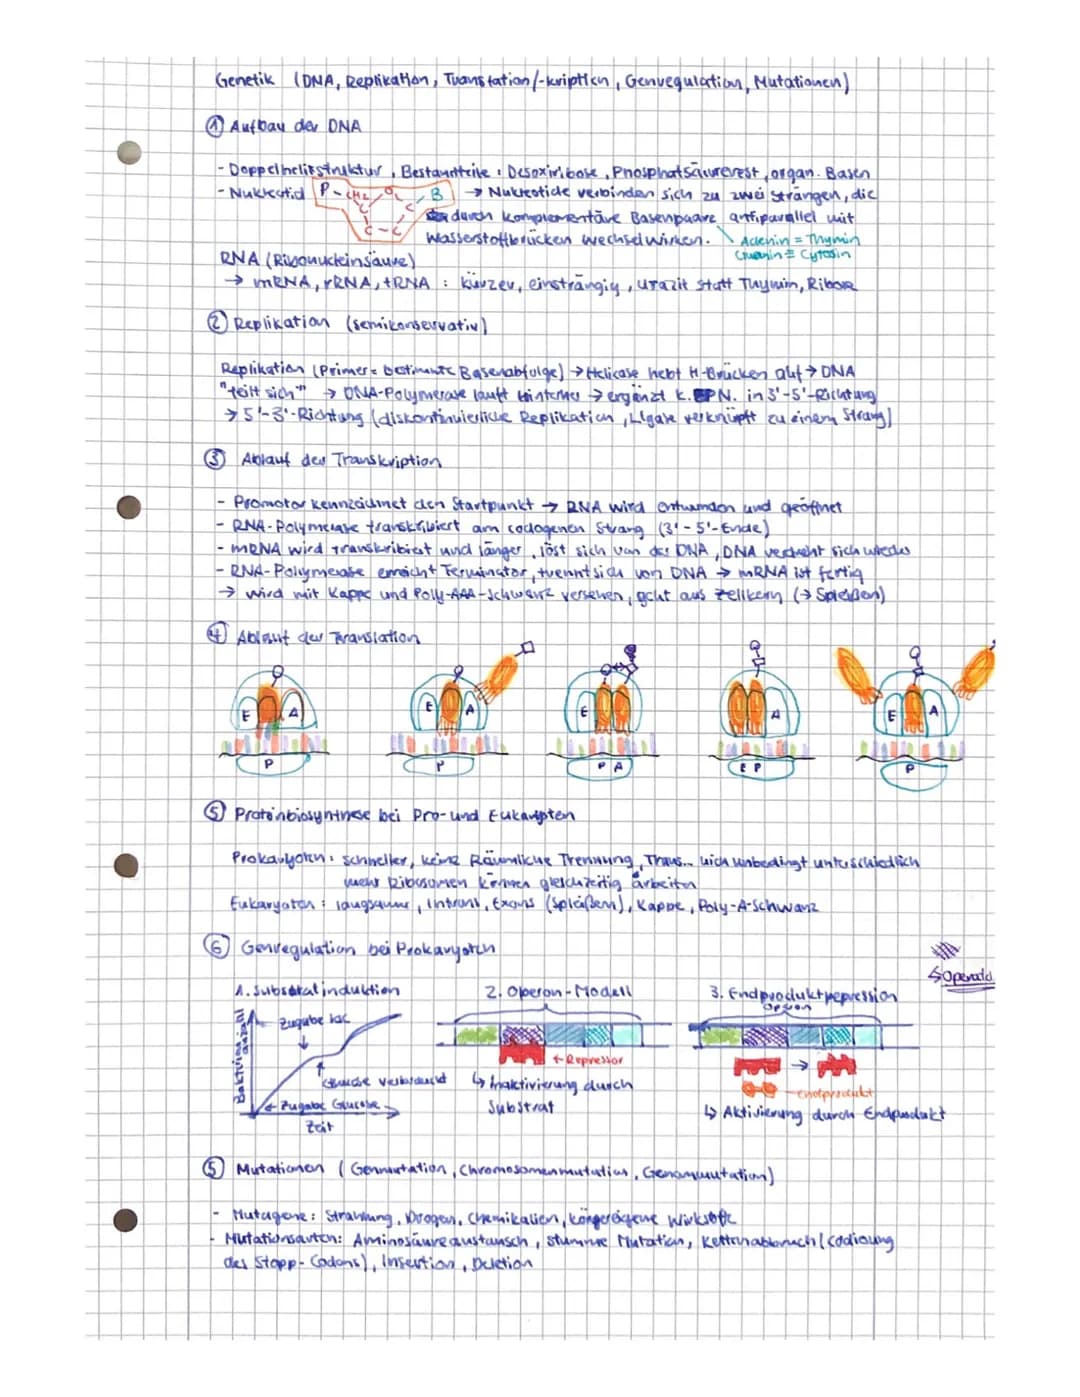 Genetik (DNA, Replikation, Translation/-kription, Genregulation, Mutationen)
① Aufbau der DNA
- Doppelhelixstruktur, Bestandteile: Desoxiribose, Phosphatsäurerest, organ. Basen
- Nukleotid P-CH2 O B C C C-C → Nukleotide verbinden sich zu zwei Strängen, die
durch komplementäre Basenpaare antiparallel mit
Wasserstoffbrücken wechselwirken. Adenin = Thymin
Guanin ≡ Cytosin
RNA (Ribonukleinsäure)
→ mRNA, rRNA, tRNA : kürzer, einsträngig, Urazil statt Thymin, Ribose
② Replikation (semikonservativ)
Replikation (Primer= bestimmte Basenabfolge) → Helicase hebt H-Brücken auf → DNA
"teilt sich" → DNA-Polymerase läuft hinterher → ergänzt k. PN. in 3'-5'-Richtung
→ 5'-3'-Richtung (diskontinuierliche Replikation, Ligase verknüpft zu einem Strang)
③ Ablauf der Transkription
- Promotor kennzeichnet den Startpunkt → RNA wird entwunden und geöffnet
- RNA-Polymerase transkribiert am codogenen Strang (3'-5'-Ende)
- mRNA wird transkribiert und länger, löst sich von der DNA, DNA verdreht sich wieder
- RNA-Polymerase erreicht Terminator, trennt sich von DNA → mRNA ist fertig
→ wird mit Kappe und Poly-AAA-Schwanz versehen, geht aus Zellkern (→ Spleißen)
④ Ablauf der Translation
E A P
E A P
E P A
A E P
E A P
⑤ Proteinbiosynthese bei Pro- und Eukaryoten
Prokaryoten: schneller, keine Räumliche Trennung, Trans... nich unbedingt unterschiedlich
mehr Ribosomen können gleichzeitig arbeiten
Eukaryoten: langsamer, Introns, Exons (Spleißen), Kappe, Poly-A-Schwanz
⑥ Genregulation bei Prokaryoten
↳ Operator
1. Substratinduktion
Bakterienanzahl
Zugabe lac
Glucose verbraucht
← Zugabe Glucose
Zeit
2. Operon-Modell
← Repressor
↳ Inaktivierung durch
Substrat
3. Endproduktrepression
Operon
Endprodukt
↳ Aktivierung durch Endprodukt
⑤ Mutationen (Genmutation, Chromosomenmutation, Genommutation)
- Mutagene: Strahlung, Drogen, Chemikalien, körpereigene Wirkstoffe
- Mutationsarten: Aminosäureaustausch, stumme Mutation, Kettenabbruch (Codierung
des Stopp-Codons), Insertion, Deletion